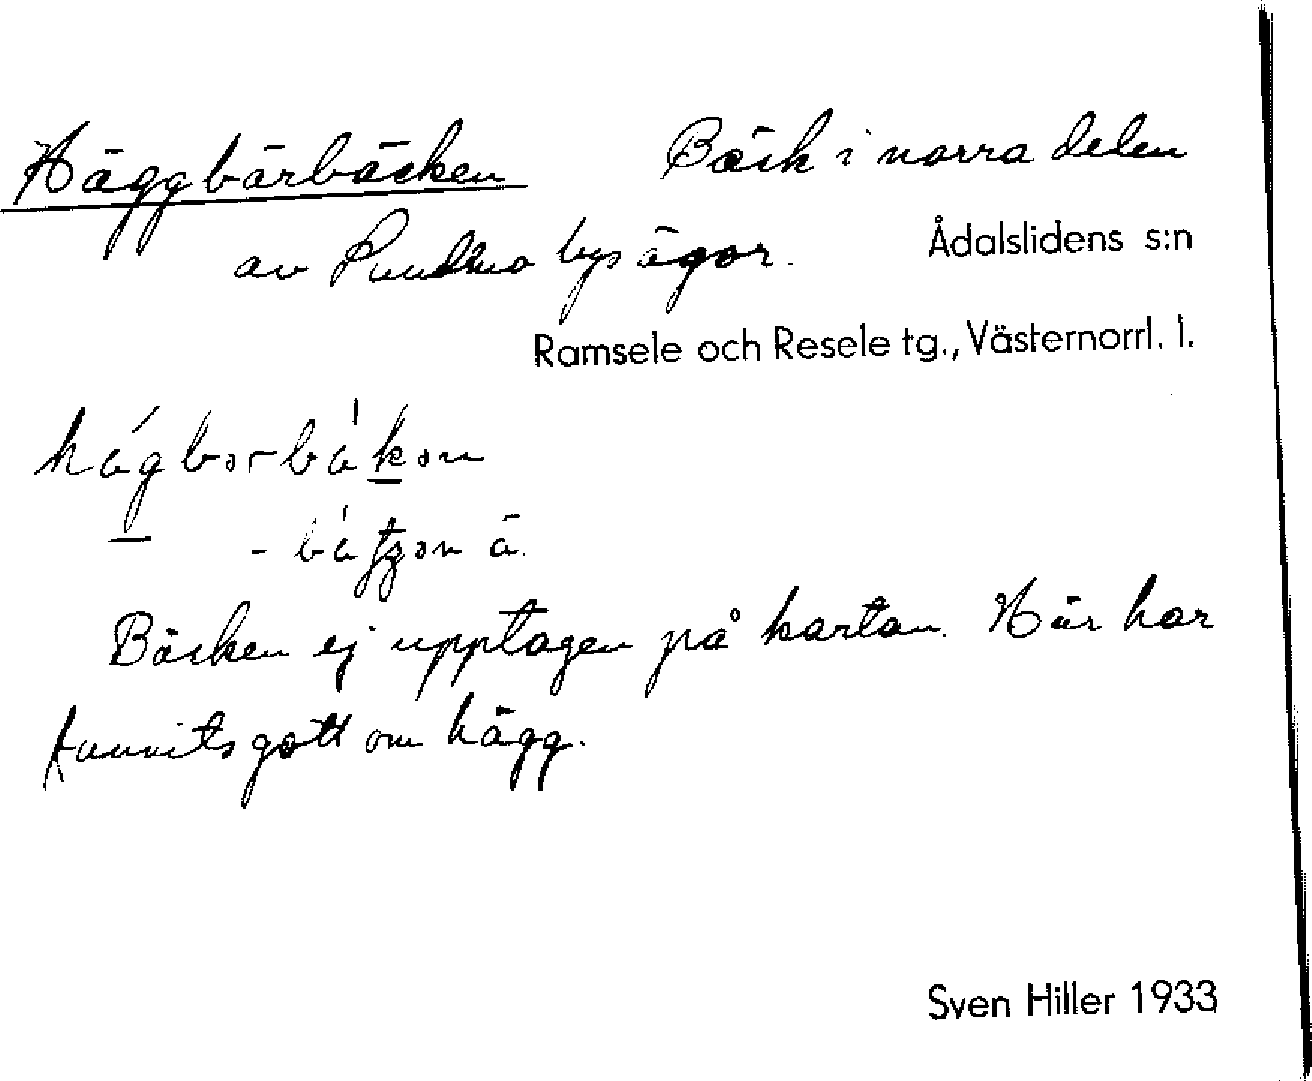 Häggbärbäcken Bäck i norra delen
av byägor. Ådalslidens s:n
Ramsele och Resele tg., Västernorrl. l.
hágbərbákən
- ən ä.
Bäcken ej upptagen på kartan. Här har
funnits gott om hägg.
Sven Hiller 1933